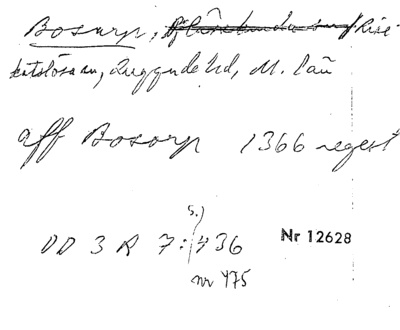 Bosarp,
katslösa sn, Luggude hd, M. län
aff Bosorp 1366 regest
s.)
DD 3 R 7: 436
nr 475
Nr 12628